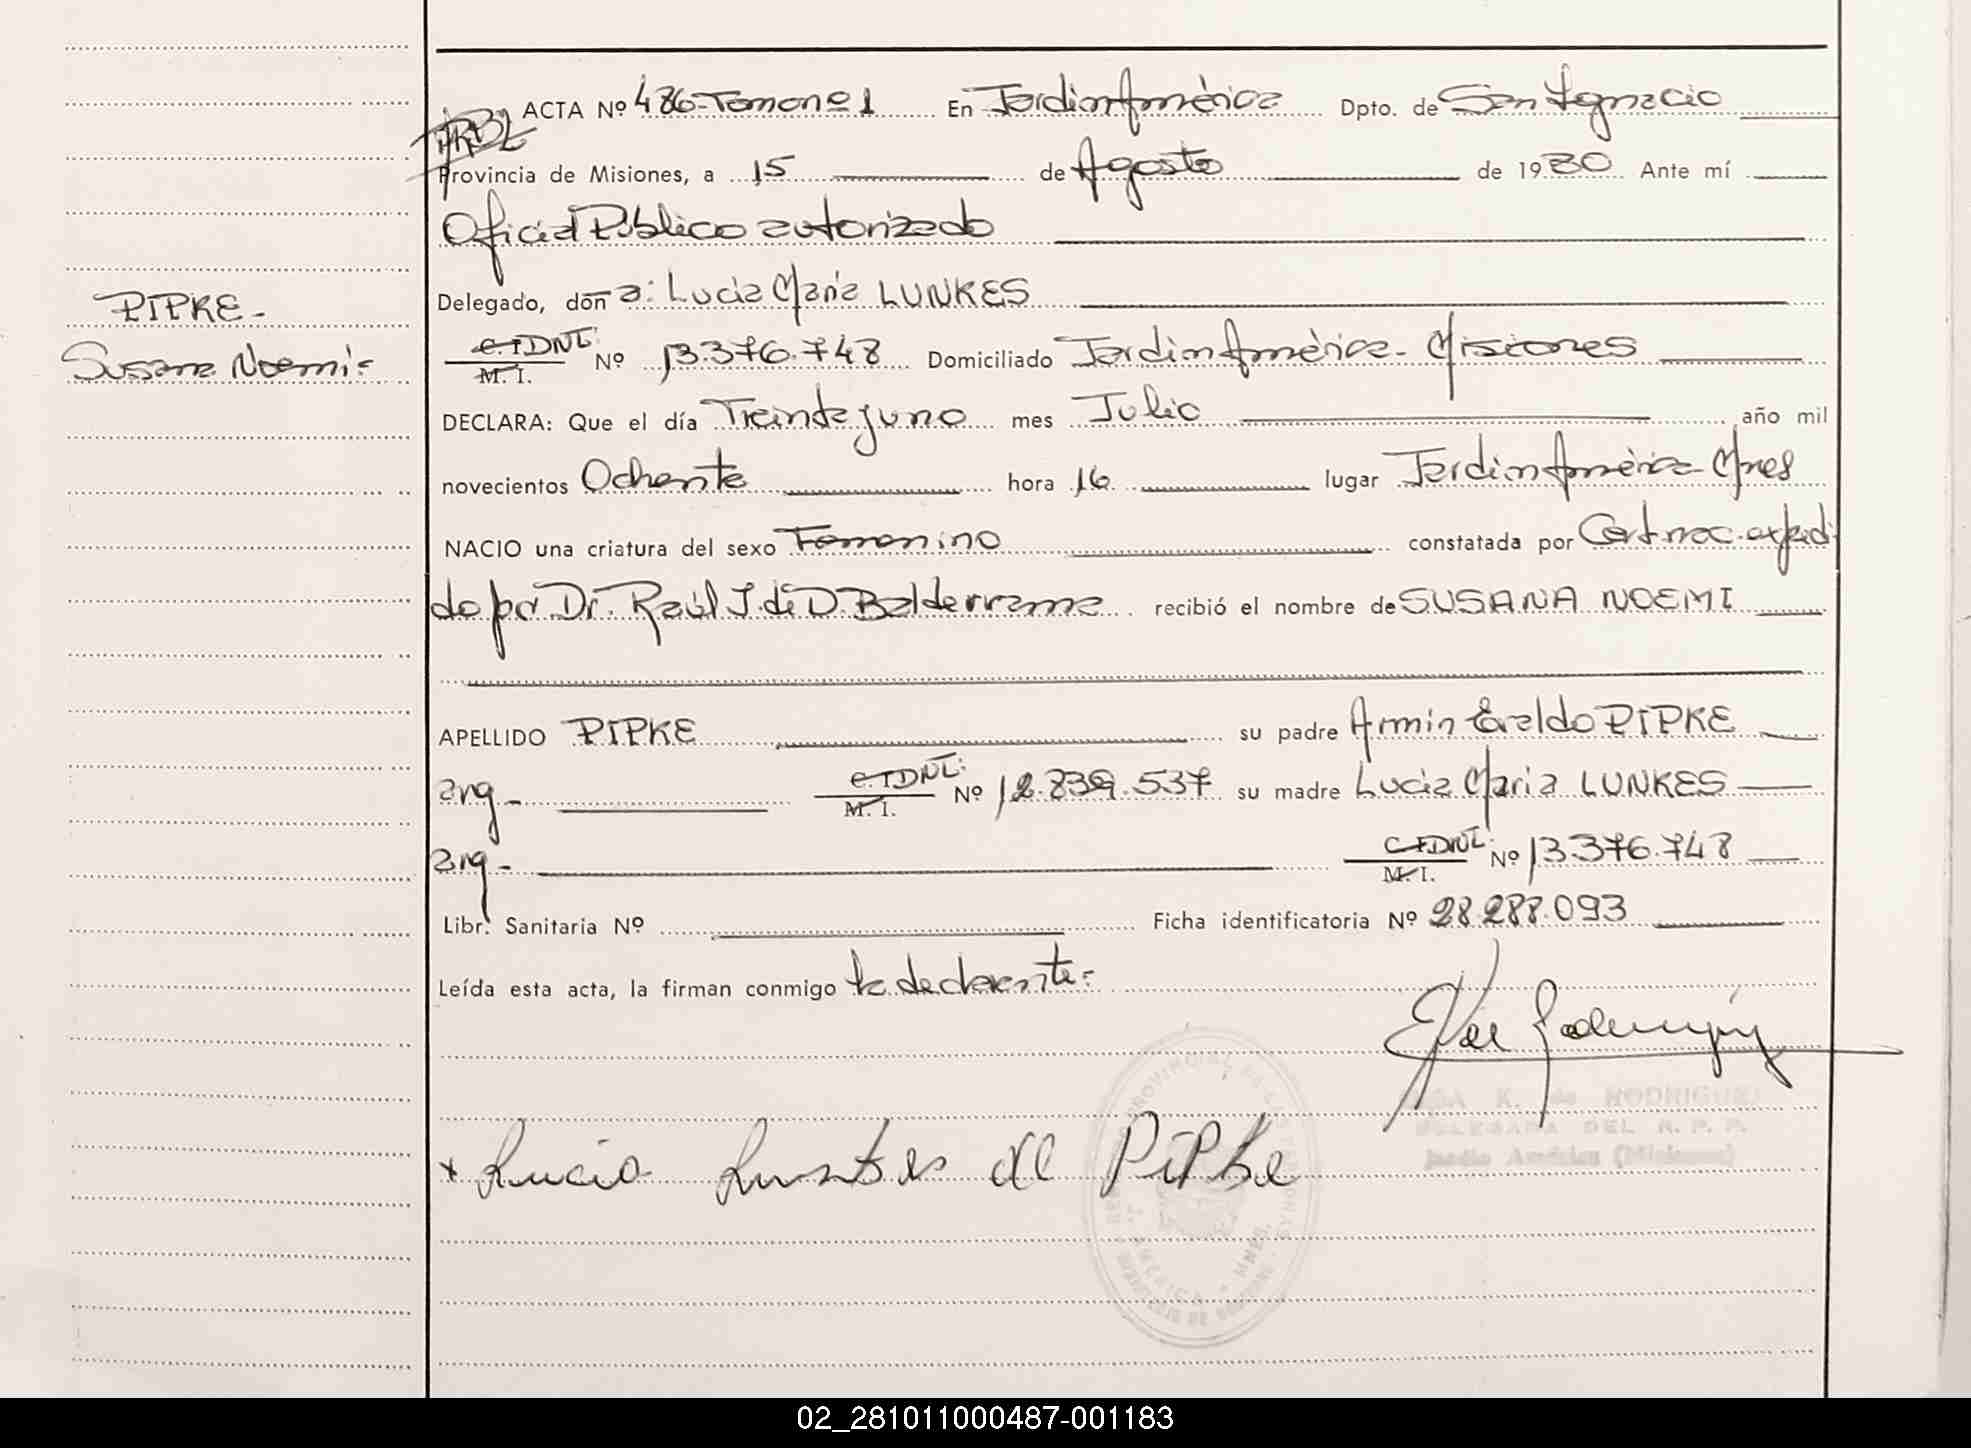 ACTA Nº 486-Tomo nº 1 En Jardin América Dpto. de San Ignacio
Provincia de Misiones, a 15 de Agosto de 1980 Ante mí
Oficial Público autorizado
Delegado, don a: Lucia Maria LUNKES
PIPKE-
C.I DNI: M. I. Nº 13.376.748 Domiciliado Jardin América- Misiones
Susana Noemi-
DECLARA: Que el día Treinta y uno mes Julio año mil
novecientos Ochenta hora 16 lugar Jardin América Mnes
NACIO una criatura del sexo Femenino constatada por Cert. nac. expedi-
do por Dr. Raúl J. de D. Balderrama recibió el nombre de SUSANA NOEMI
APELLIDO PIPKE su padre Armin Eraldo PIPKE
arg- C.I DNI: M. I. Nº 12.839.537 su madre Lucia Maria LUNKES
arg- C.I DNI: M. I. Nº 13.376.748
Libr. Sanitaria Nº Ficha identificatoria Nº 28.288.093
Leída esta acta, la firman conmigo la declarante-
K. de RODRIGUEZ
DELEGADA DEL R. P. P.
Jardín América (Misiones)
+ Lucia Lunkes de Pipke
02_281011000487-001183